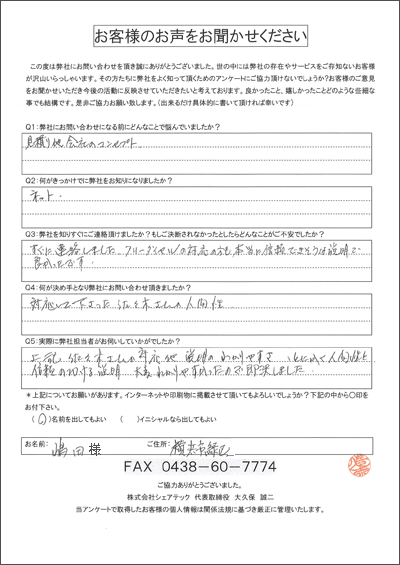 お客様のお声をお聞かせください
この度は弊社にお問い合わせを頂き誠にありがとうございました。世の中には弊社の存在やサービスをご存知ないお客様
が沢山いらっしゃいます。その方たちに弊社をよく知って頂くためのアンケートにご協力頂けないでしょうか？お客様のご意見
をお聞かせいただき今後の活動に反映させていただきたいと考えております。良かったこと、嬉しかったことどのような些細な
事でも結構です。是非ご協力お願い致します。（出来るだけ具体的に書いて頂ければ幸いです）
Q1：弊社にお問い合わせになる前にどんなことで悩んでいましたか？
見積り他 会社のコンセプト
Q2：何がきっかけでに弊社をお知りになりましたか？
ネット.
Q3：弊社を知りすぐにご連絡頂けましたか？もしご決断されなかったとしたらどんなことがご不安でしたか？
すぐに連絡しました フリーダイヤルの対応の方も本当に信頼できそうな説明で
良かったです.
Q4：何が決め手となり弊社にお問い合わせ頂きましたか？
対応して下さった 佐々木さんの人間性
Q5：実際に弊社担当者がお伺いしていかがでしたか？
上記. 佐々木さんの対応他 説明のわかりやすさ とにかく人間性と
信頼の 説明 大変わかりやすかったので即決しました.
＊上記についてお願いがあります。インターネットや印刷物に掲載させて頂いてもよろしいでしょうか？下記の中から〇印を
お付下さい。
（〇）名前を出してもよい （ ）イニシャルなら出してもよい
お名前： 嶋田 様 ご住所： 横浜市緑区
FAX 0438-60-7774
ご協力ありがとうございました。
株式会社シェアテック 代表取締役 大久保 誠二
当アンケートで取得したお客様の個人情報は関係法規に基づき厳正に管理いたします。